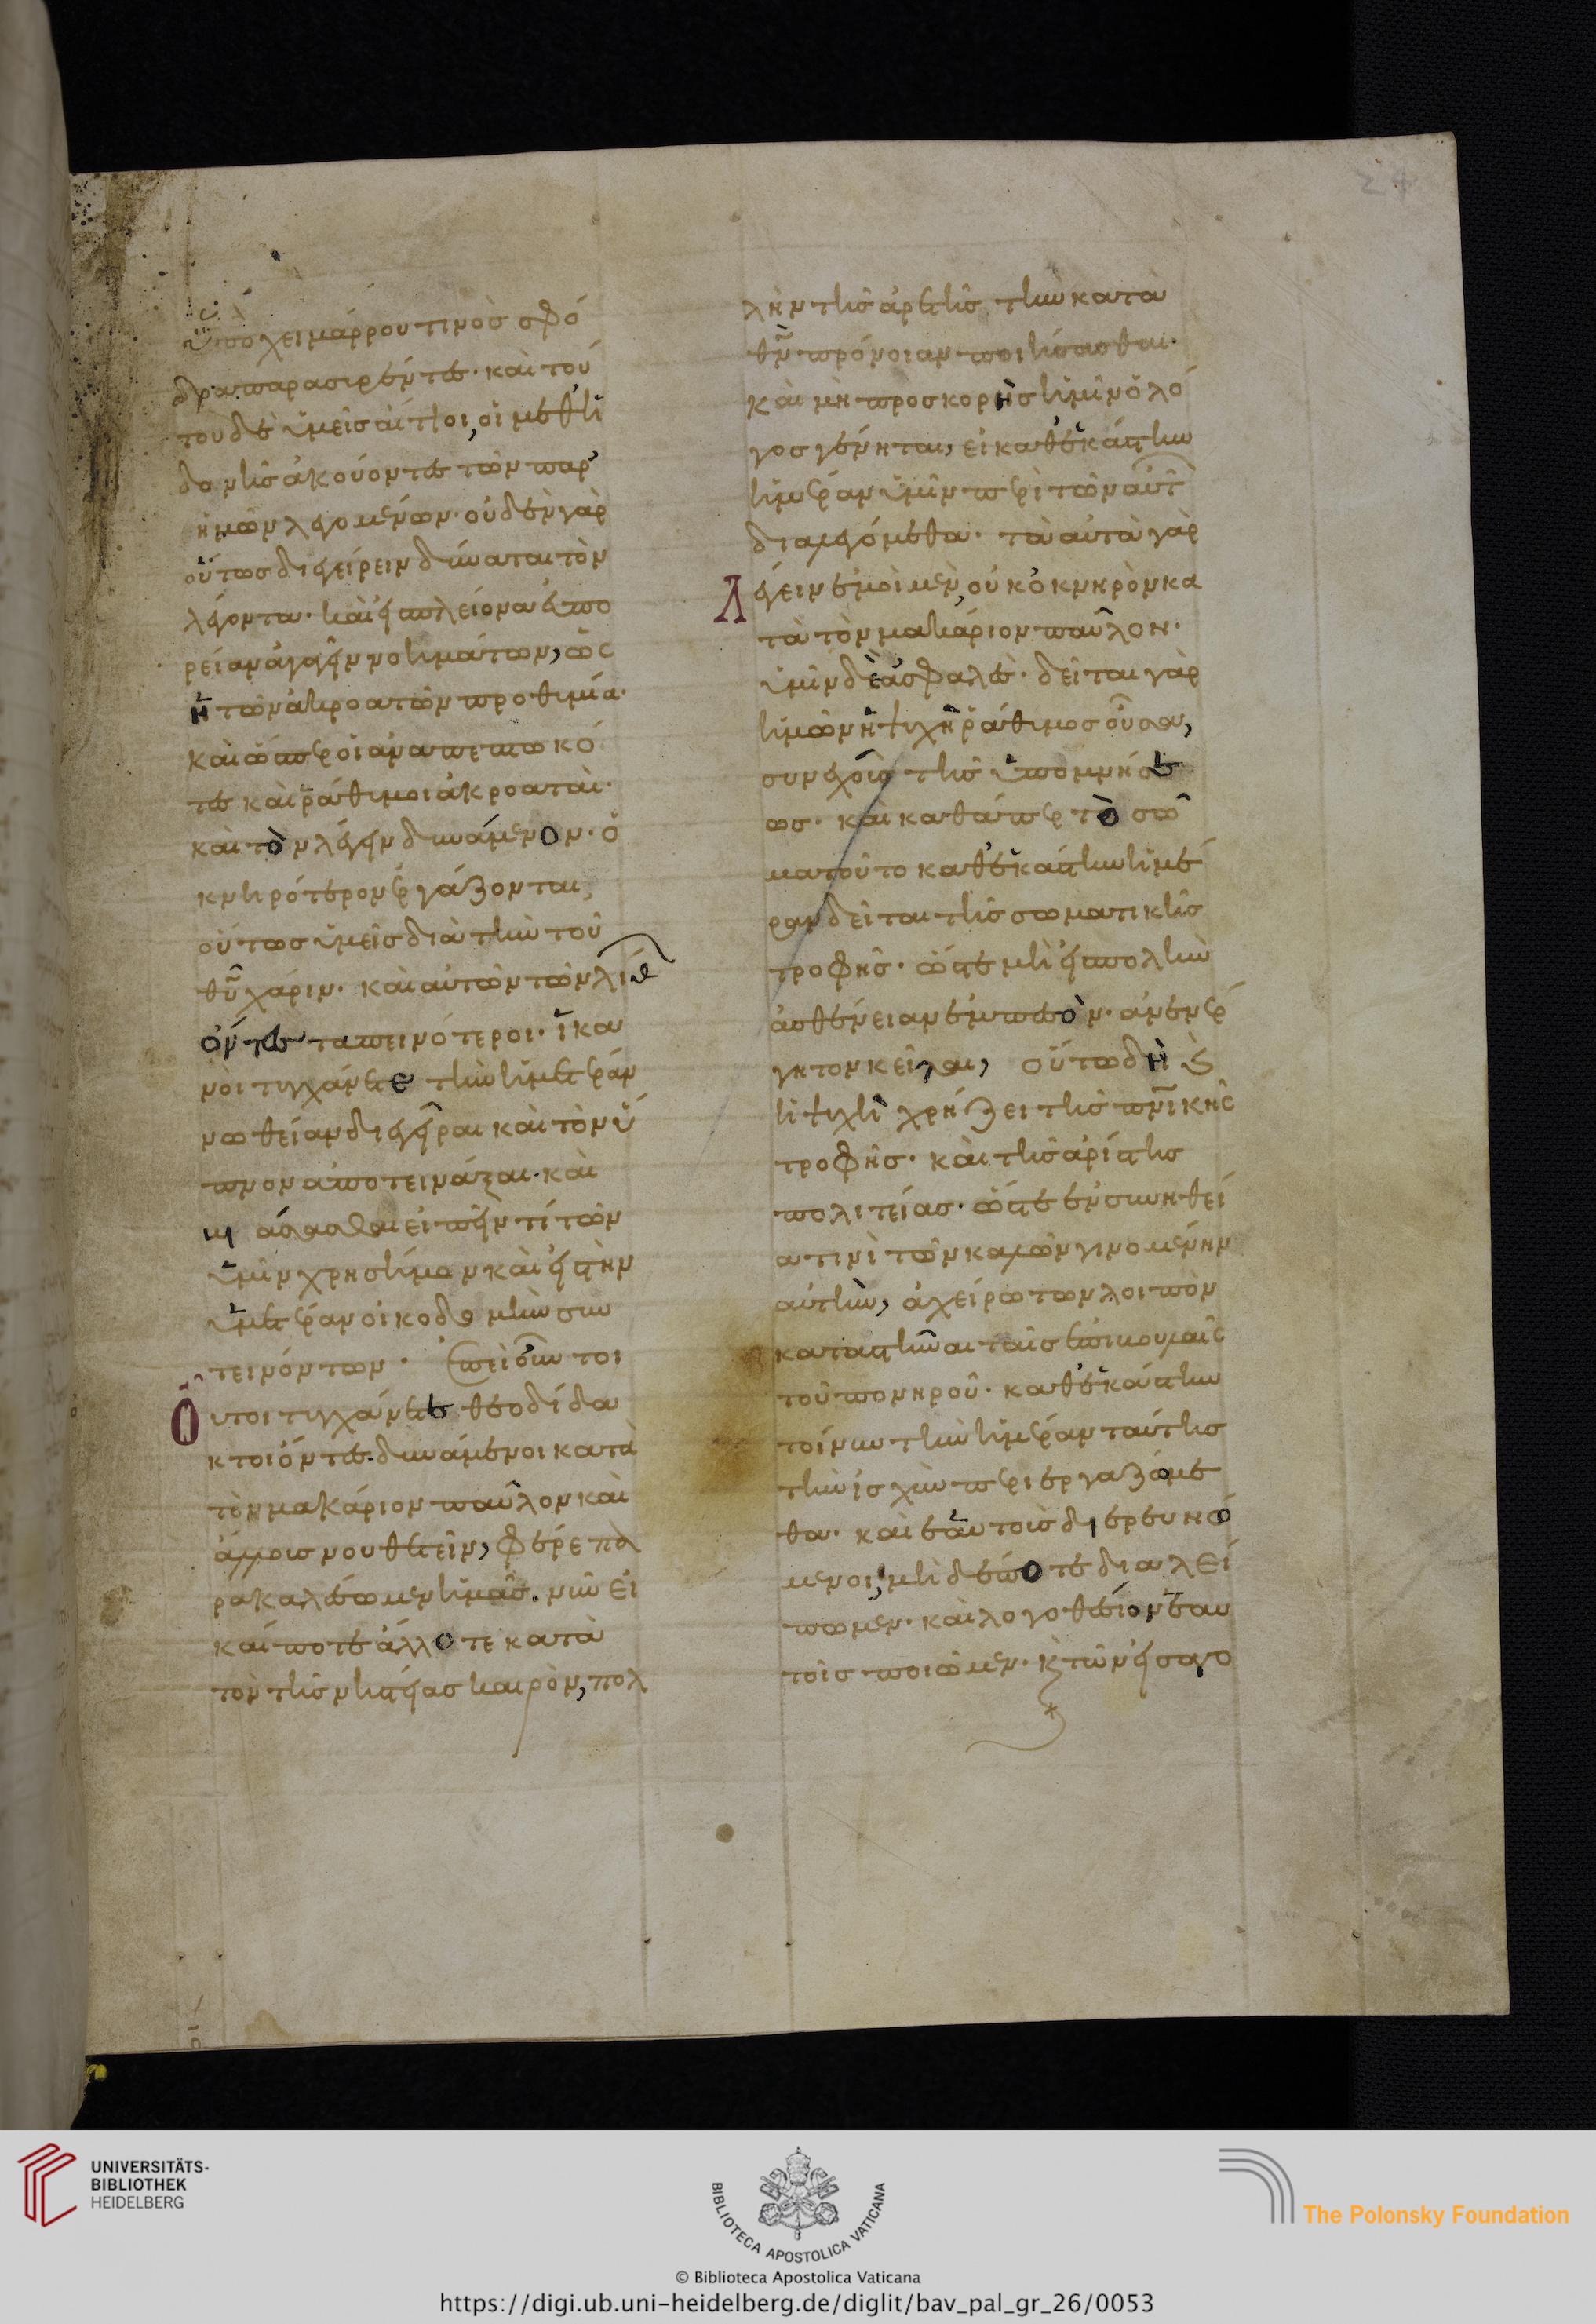 24
ὑπὸ χειμάρρου τινὸς σφό
δρα παρασυρέντες· καὶ τού
του δὲ ὑμεῖς αἴτιοι, οἱ μεθ' ἡ
δονῆς ἀκούοντες τῶν παρ'
ἡμῶν λεγομένων· οὐδὲν γὰρ
οὕτως διεγείρειν δύναται τὸν
λέγοντα· καὶ εἰς πλείονα εὐπο
ρείαν ἀγαγεῖν νοημάτων, ὡς
ἡ τῶν ἀκροατῶν προθυμία·
καὶ ὥσπερ οἱ ἀναπεπτωκό
τες καὶ ῥάθυμοι ἀκροαταὶ·
καὶ τὸν λέγειν δυνάμενον· ὀ
κνηρότερον ἐργάζονται,
οὕτως ὑμεῖς διὰ τὴν τοῦ
θῦ χάριν· κἂν αὐτῶν τῶν λίθ
ὄντες ταπεινότεροι· ἱκα
νοὶ τυγχάνετε τὴν ἡμετέραν
νωθείαν διεγεῖραι καὶ τὸν ὕ
πνον ἀποτεινάξαι· καὶ
εἰπεῖν τί τῶν
ὑμῖν χρησίμων καὶ εἰς τὴν
ὑμετέραν οἰκοδομὴν συν
τεινόντων· ἐπεὶ οὖν τοι
οῦτοι τυγχάνετε θεοδίδα
κτοι ὄντες· δυνάμενοι κατὰ
τὸν μακάριον παῦλον καὶ
ἄλλοις νουθετεῖν, φέρε πα
ρακαλέσωμεν ὑμᾶς. νῦν εἰ
καί ποτε ἄλλοτε κατὰ
τὸν τῆς νηστείας καιρὸν, πολ
λὴν τῆς ἀρετῆς τὴν κατὰ
θν πρόνοιαν ποιήσασθαι·
καὶ μὴ προσκορὴς ὑμῖν ὁ λό
γος γένηται, εἰ καθ' ἑκάστην
ἡμέραν ὑμῖν περὶ τῶν αὐτ
διαλεγόμεθα· τὰ αὐτὰ γὰρ
λέγειν ἐμοὶ μὲν, οὐκ ὀκνηρὸν κα
τὰ τὸν μακάριον παῦλον·
ὑμῖν δὲ ἀσφαλὲς· δεῖται γὰρ
ἡμῶν ἡ ψυχὴ ῥάθυμος οὖσα,
συνεχοῦς τῆς ὑπομνήσε
ως· καὶ καθάπερ τὸ σῶ
μα τοῦτο καθ' ἑκάστην ἡμέ
ραν δεῖται τῆς σωματικῆς
τροφῆς· ὥστε μὴ εἰς πολλὴν
ἀσθένειαν ἐμπεσὸν· ἀνενέρ
γητον κεῖσθαι, οὕτω δὴ καὶ
ἡ ψυχὴ χρήζει τῆς πνικῆς
τροφῆς· καὶ τῆς ἀρίστης
πολιτείας· ὥστε ἐν συνηθεί
α τινὶ τῶν καλῶν γινομένην
αὐτὴν, ἀχείρωτον λοιπὸν
καταστῆναι ταῖς ἐπιβουλαῖς
τοῦ πονηροῦ· καθ' ἑκάστην
τοίνυν τὴν ἡμέραν ταύτης
τὴν ἰσχὺν περιεργαζόμε
θα· καὶ ἑαυτοὺς διερευνώ
μενοι, μηδέποτε διαλεί
πωμεν· καὶ λογοθέσιον ἑαυ
τοῖς ποιῶμεν· καὶ τῶν εἰσαγο
UNIVERSITÄTS-
BIBLIOTHEK
HEIDELBERG
BIBLIOTECA APOSTOLICA VATICANA
The Polonsky Foundation
© Biblioteca Apostolica Vaticana
https://digi.ub.uni-heidelberg.de/diglit/bav_pal_gr_26/0053